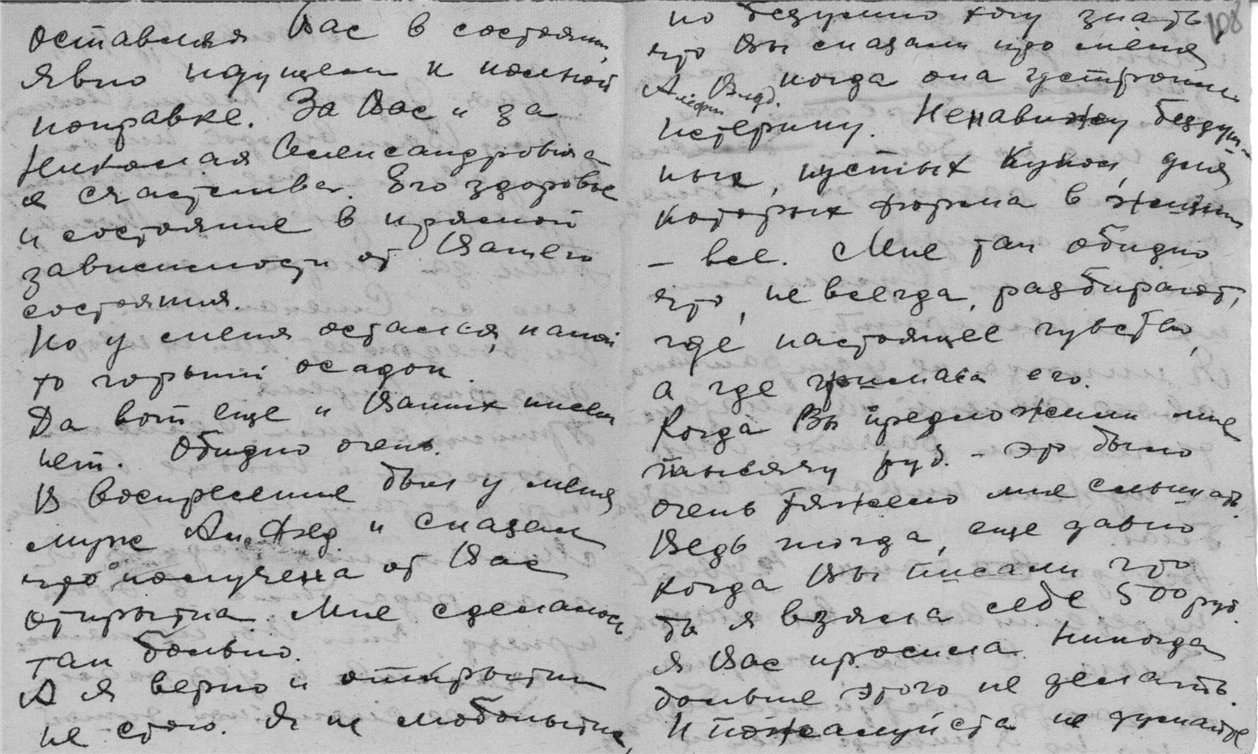 оставляя Вас в состоянии,
явно идущем к полной
поправке. За Вас и за
Николая Александровича
я счастлива. Его здоровье
и состояние в прямой
зависимости от Вашего
состояния.
Но у меня остался какой
то горький осадок.
Да вот еще и Ваших писем
нет. Обидно очень.
В воскресение был у меня
муж Ан. Фед. и сказал
что получена от Вас
открытка. Мне сделалось
так больно.
А я верно и открытки
не стою. Я не любопытна,
108
но безумно хочу знать
что Вы сказали про меня
Влад. когда она устроила
истерику. Ненавижу бездуш-
ных, пустых кукол, для
которых форма в жизни
– все. Мне так обидно
что, не всегда, разбирают,
где настоящее чувство,
а где гримаса его.
Когда Вы предложили мне
тысячу руб. – это было
очень тяжело мне слышать.
Ведь тогда, еще давно
когда Вы писали что
бы я взяла себе 500 руб.
я Вас просила никогда
больше этого не делать.
И пожалуйста не думайте